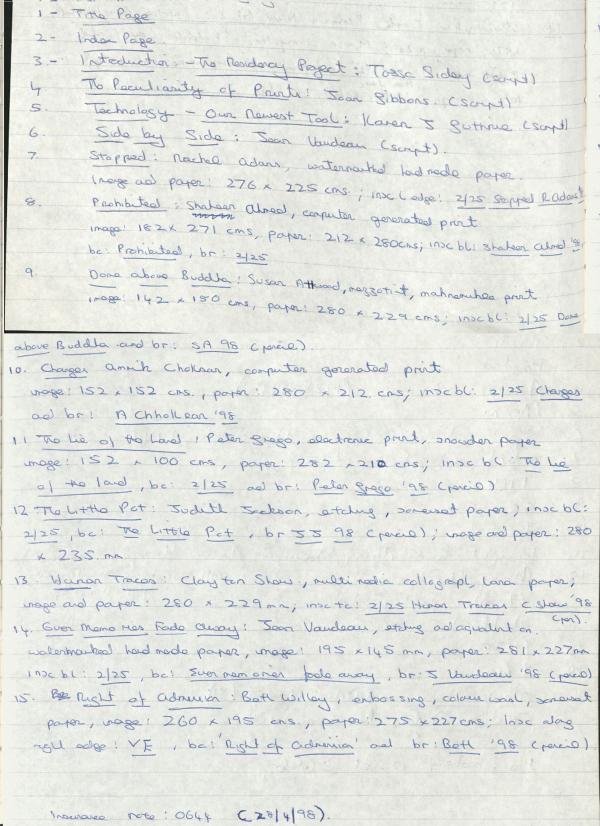 1 - Title Page
2 - Index Page
3. - Introduction - The Residency Project : Tossa Sidey (script)
4 The Peculiarity of Prints : Joan Gibbons. (script)
5. Technology - Our Newest Tool : Karen J Guthrie (script)
6. Side by Side : Joan Vaudeau (script).
7. Stopped : Rachel Adams, watermarked hand made paper.
Image and paper : 276 x 225 cms. ; insc l edge : 2/25 Stopped R Adams
8. Prohibited : Shaheen Ahmed, computer generated print
image : 182 x 271 cms, paper : 212 x 280cms; insc bl: Shaheen Ahmed '98
bc : Prohibited, br : 2/25
9. Dome above Buddha : Susan Attwood, mezzotint, print
image : 142 x 180 cms, paper : 280 x 229 cms ; insc bl : 2/25 Dome
above Buddha and br : SA 98 (pencil).
10. Charges Amrik Chokran, computer generated print
image : 152 x 152 cms., paper : 280 x 212 cms; insc bl : 2/25 Charges
and br : A Chhokran '98
11. The Lie of the Land : Peter Grego, electronic print, snowdon paper
image : 152 x 100 cms, paper : 282 x 210 cms; insc bl : The lie
of the land, bc : 2/25 and br : Peter Grego '98 (pencil)
12 The Little Pet : Judith Jackson, etching, somerset paper; insc bl :
2/25, bc : The Little Pet, br JJ 98 (pencil); image and paper : 280
x 235 mm
13. Human Traces : Clayton Shaw, multi media collograph, lana paper;
image and paper : 280 x 229mm; insc tc : 2/25 Human Traces C Shaw '98
(pen).
14. Ever Memories Fade Away : Joan Vaudeau, etching and aquatint on
watermarked hand made paper, image : 195 x 145 mm, paper : 281 x 227mm
insc bl : 2/25, bc : Ever memories fade away, br : J Vaudeau '98 (pencil)
15. Right of Admission : Beth Willey, embossing, colour wash, somerset
paper, image : 260 x 195 cms, paper : 275 x 227cms; Insc along
right edge : VE, bc : 'Right of Admission' and br : Beth '98 (pencil)
Insurance note : 0644 (28/4/98).